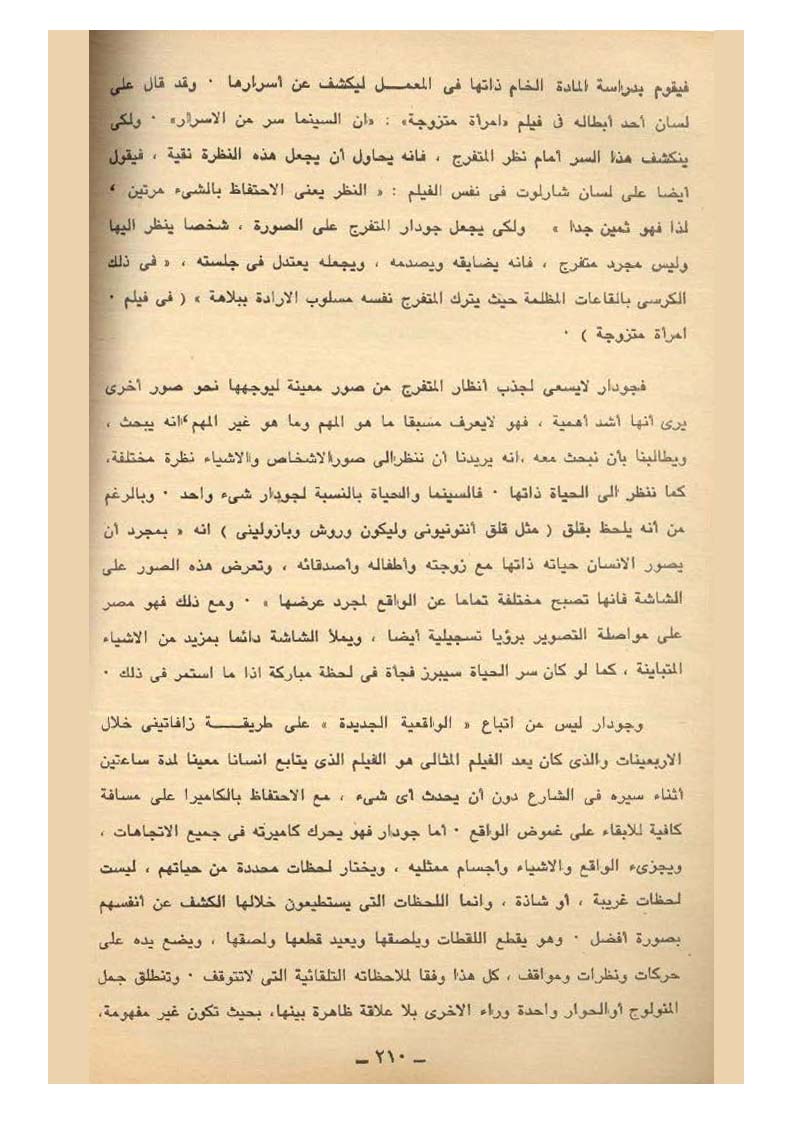 فيقوم بدراسة المادة الخام ذاتها فى المعمـــل ليكشف عن أسرارها ٠ وقد قال على
لسان أحد أبطاله فى فيلم «امرأة متزوجة» : «ان السينما سر من الاسرار» ٠ ولكى
ينكشف هذا السر أمام نظر المتفرج ، فانه يحاول أن يجعل هذه النظرة نقية ، فيقول
أيضا على لسان شارلوت فى نفس الفيلم : « النظر يعنى الاحتفاظ بالشىء مرتين ،
لذا فهو ثمين جدا » ولكى يجعل جودار المتفرج على الصورة ، شخصا ينظر اليها
وليس مجرد متفرج ، فانه يضايقه ويصدمه ، ويجعله يعتدل فى جلسته ، « فى ذلك
الكرسى بالقاعات المظلمة حيث يترك المتفرج نفسه مسلوب الارادة ببلاهة » ( فى فيلم ٠
امرأة متزوجة ) ٠
فجودار لايسعى لجذب أنظار المتفرج من صور معينة ليوجهها نحو صور أخرى
يرى أنها أشد أهمية ، فهو لايعرف مسبقا ما هو المهم وما هو غير المهم ،انه يبحث ،
ويطالبنا بأن نبحث معه ،انه يريدنا أن ننظرالى صورالاشخاص والاشياء نظرة مختلفة،
كما ننظر الى الحياة ذاتها ٠ فالسينما والحياة بالنسبة لجودار شىء واحد ٠ وبالرغم
من أنه يلحظ بقلق ( مثل قلق أنتونيونى وليكون وروش وبازولينى ) انه « بمجرد أن
يصور الانسان حياته ذاتها مع زوجته وأطفاله وأصدقائه ، وتعرض هذه الصور على
الشاشة فانها تصبح مختلفة تماما عن الواقع لمجرد عرضها » ٠ ومع ذلك فهو مصر
على مواصلة التصوير برؤيا تسجيلية أيضا ، ويملأ الشاشة دائما بمزيد من الاشياء
المتباينة ، كما لو كان سر الحياة سيبرز فجأة فى لحظة مباركة اذا ما استمر فى ذلك ٠
وجودار ليس من اتباع « الواقعية الجديدة » على طريقـــة زافاتينى خلال
الاربعينات والذى كان يعد الفيلم المثالى هو الفيلم الذى يتابع انسانا معينا لمدة ساعتين
أثناء سيره فى الشارع دون أن يحدث أى شىء ، مع الاحتفاظ بالكاميرا على مسافة
كافية للابقاء على غموض الواقع ٠ أما جودار فهو يحرك كاميرته فى جميع الاتجاهات ،
ويجزىء الواقع والاشياء وأجسام ممثليه ، ويختار لحظات محددة من حياتهم ، ليست
لحظات غريبة ، أو شاذة ، وانما اللحظات التى يستطيعون خلالها الكشف عن أنفسهم
بصورة أفضل ٠ وهو يقطع اللقطات ويلصقها ويعيد قطعها ولصقها ، ويضع يده على
حركات ونظرات ومواقف ، كل هذا وفقا لملاحظاته التلقائية التى لاتتوقف ٠ وتنطلق جمل
المنولوج أوالحوار واحدة وراء الاخرى بلا علاقة ظاهرة بينها، بحيث تكون غير مفهومة،
ـ ٢١٠ ـ